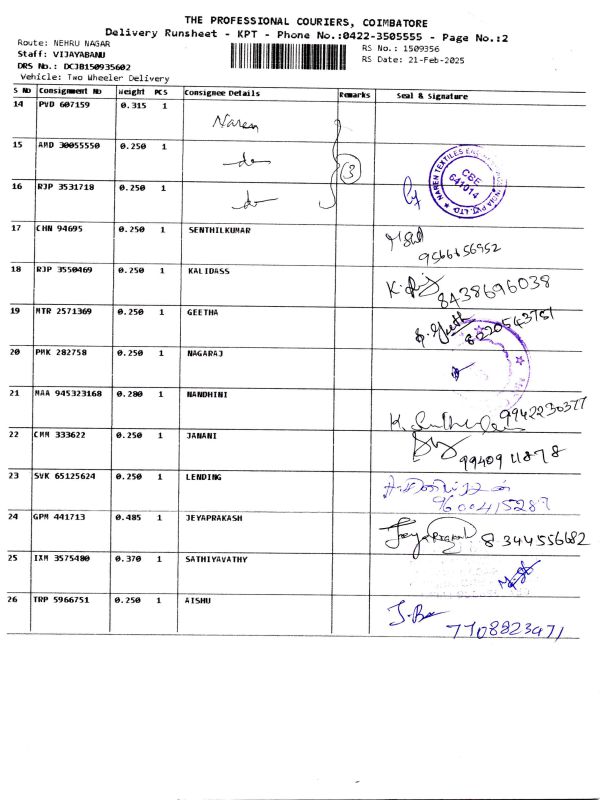 THE PROFESSIONAL COURIERS, COIMBATORE
Delivery Runsheet - KPT - Phone No.:0422-3505555 - Page No.:2
Route: NEHRU NAGAR
Staff: VIJAYABANU
DRS No.: DCJB150935602
Vehicle: Two Wheeler Delivery
RS No.: 1509356
RS Date: 21-Feb-2025
S No Consignment No Weight PCS Consignee Details Remarks Seal & Signature
14 PVD 607159 0.315 1 Naren
15 AMD 30055550 0.250 1 do
3
NAREN TEXTILES INDIA PVT. LTD. CBE 641014
16 RJP 3531718 0.250 1 do
17 CHN 94695 0.250 1 SENTHILKUMAR
9566656952
18 RJP 3550469 0.250 1 KALIDASS
8438696038
19 MTR 2571369 0.250 1 GEETHA
8220543781
20 PMK 282758 0.250 1 NAGARAJ
21 MAA 945323168 0.280 1 NANDHINI
9942230377
22 CMM 333622 0.250 1 JANANI
9940911878
23 SVK 65125624 0.250 1 LENDING
9600415287
24 GPM 441713 0.485 1 JEYAPRAKASH
Jeyaprakash 8344556682
25 IXM 3575480 0.370 1 SATHIYAVATHY
26 TRP 5966751 0.250 1 AISHU
7708823971